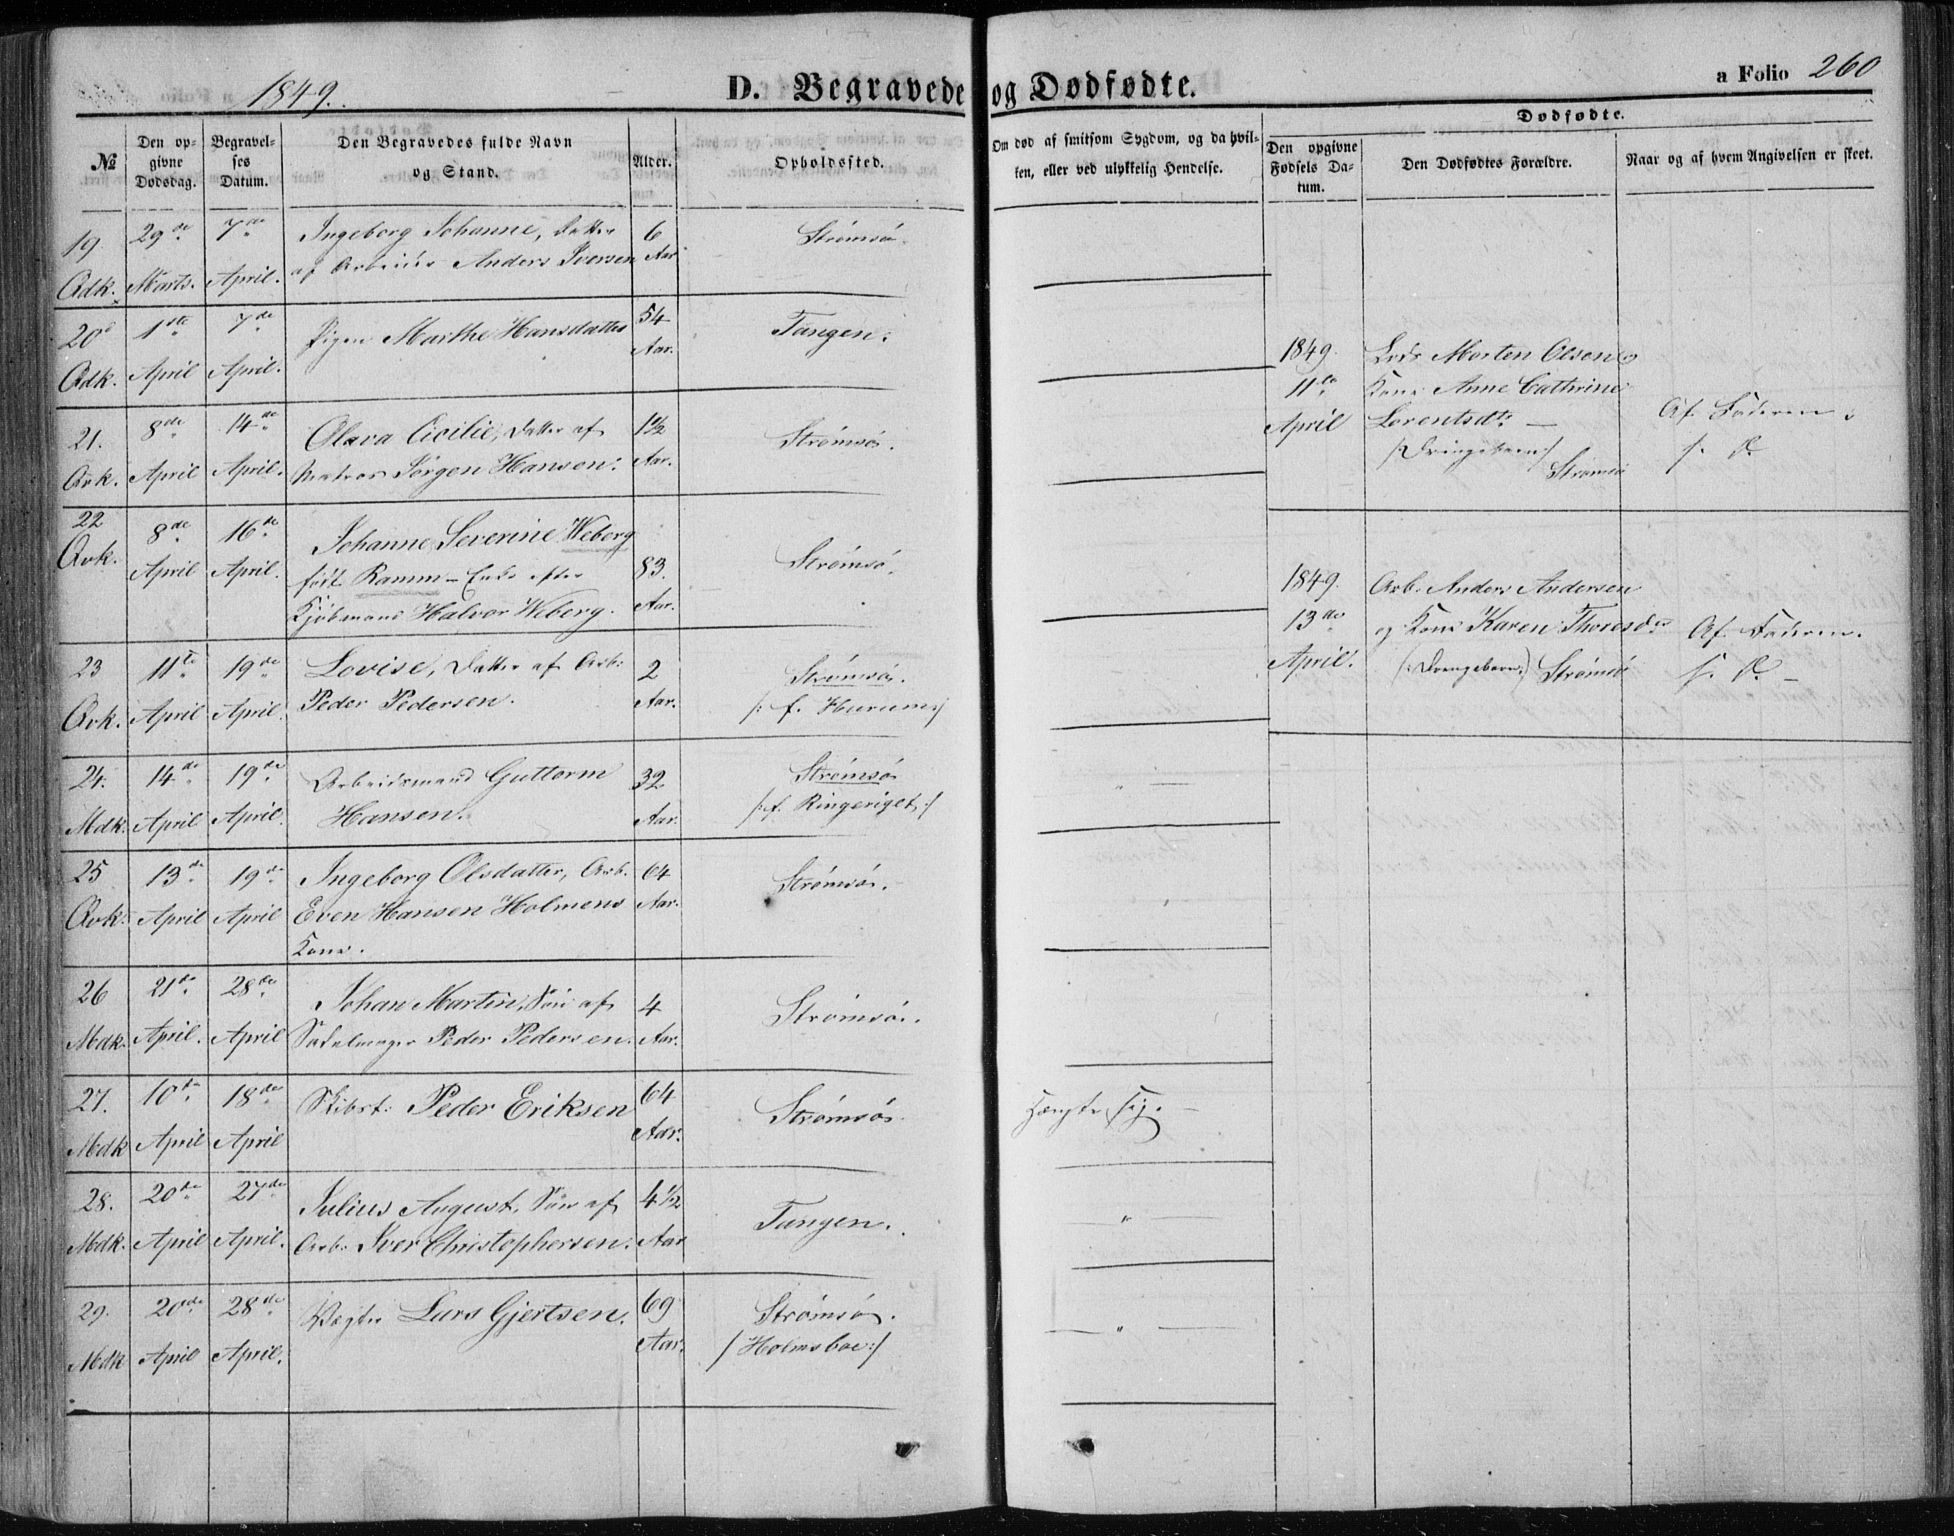 1849.
D. Begravede og Dødfødte.
a Folio 260
№
Den opgivne Dødsdag.
Begravelses Datum.
Den Begravedes fulde Navn og Stand.
Alder.
Opholdssted.
Om død af smitsom Sygdom, og da hvilken, eller ved ulykkelig Hendelse.
Dødfødte.
Den opgivne Fødsels Datum.
Den Dødfødtes Forældre.
Naar og af hvem Angivelsen er skeet.
19 Qdk. 29de Marts. 7de April. Ingeborg Johanne, Datter
af Arbeider Anders Iversen 6 Aar Strømsø.
20 Qdk. 1ste April 7de April. Pigen Marthe Hansdatter 54 Aar. Tangen.
21. Qvk. 8de April 14de April. Olava Cicilie, Datter af
Matros Jørgen Hansen. 1½ Aar. Strømsø.
22 Qvk. 8de April 16de April. Johanne Severine Weberg
født Ramm - Enke efter
Kjøbmand Halvor Weberg. 83. Aar. Strømsø.
23 Qvk. 11te April 19de April. Lovise, Datter af Arb.
Peder Pedersen. 2 Aar. Strømsø.
/: f. Hurum :/
24. Mdk. 14de April 19de April. Arbeidsmand Guttorm
Hansen. 32 Aar. Strømsø
/: f. Ringeriget :/
25 Qvk. 13de April 19de April Ingeborg Olsdatter, Arb.
Even Hansen Holmens
Kone. 64 Aar. Strømsø.
26 Mdk. 21de April. 28de April Johan Martin, Søn af
Sadelmager Peder Pedersen. 4 Aar. Strømsø.
27. Mdk 10de April 18de April Skibst. Peder Eriksen 64 Aar. Strømsø. Hængte sig. -
28. Mdk. 20de April 27de April. Julius August, Søn af
Arb. Iver Christophersen. 4½ Aar Tangen. "
29. Mdk 20de April 28de April. Vægter Lars Gjertsen. 69 Aar. Strømsø.
/ Holmsboe :/ "
1849. 11te April Lods Morten Olsen og
Kone Anne Cathrine
Lorentsdr. -
/ Drengebarn / Strømsø
Af Faderen.
s. D.
1849. 13de April. Arb. Anders Andersen
og Kone Karen Thoresdr
(: Drengebarn :) Strømsø
Af Faderen.
s. D. -